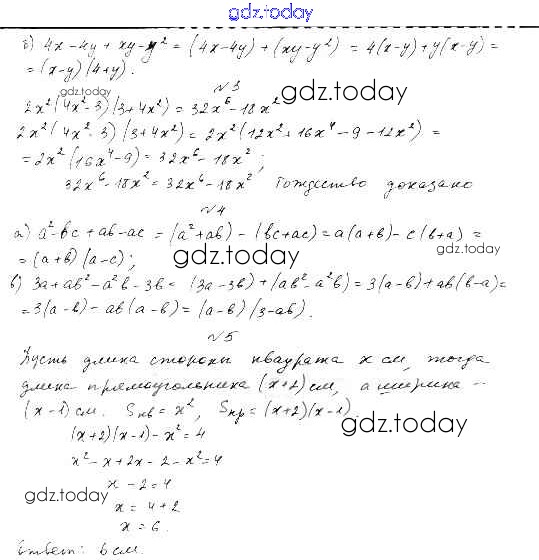 gdz.today
б) 4x-4y+xy-y² = (4x-4y)+(xy-y²) = 4(x-y)+y(x-y) =
= (x-y)(4+y).
gdz.today
№3
2x²(4x²-3)(3+4x²) = 32x⁶-18x²
gdz.today
2x²(4x²-3)(3+4x²) = 2x²(12x²+16x⁴-9-12x²) =
= 2x²(16x⁴-9) = 32x⁶-18x²;
32x⁶-18x² = 32x⁶-18x² Тождество доказано
№4
а) a²-bc+ab-ac = (a²+ab)-(bc+ac) = a(a+b)-c(b+a) =
= (a+b)(a-c);
gdz.today
gdz.today
б) 3a+ab²-a²b-3b = (3a-3b)+(ab²-a²b) = 3(a-b)+ab(b-a) =
= 3(a-b)-ab(a-b) = (a-b)(3-ab).
№5
Пусть длина стороны квадрата x см, тогда
длина прямоугольника (x+2) см, а ширина -
(x-1) см. Sкв = x², Sпр = (x+2)(x-1).
gdz.today
(x+2)(x-1)-x² = 4
x²-x+2x-2-x² = 4
x-2 = 4
gdz.today
x = 4+2
x = 6.
Ответ: 6 см.